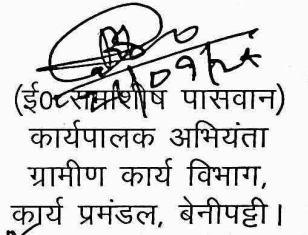 (ई० रामाशीष पासवान)
कार्यपालक अभियंता
ग्रामीण कार्य विभाग,
कार्य प्रमंडल, बेनीपट्टी।